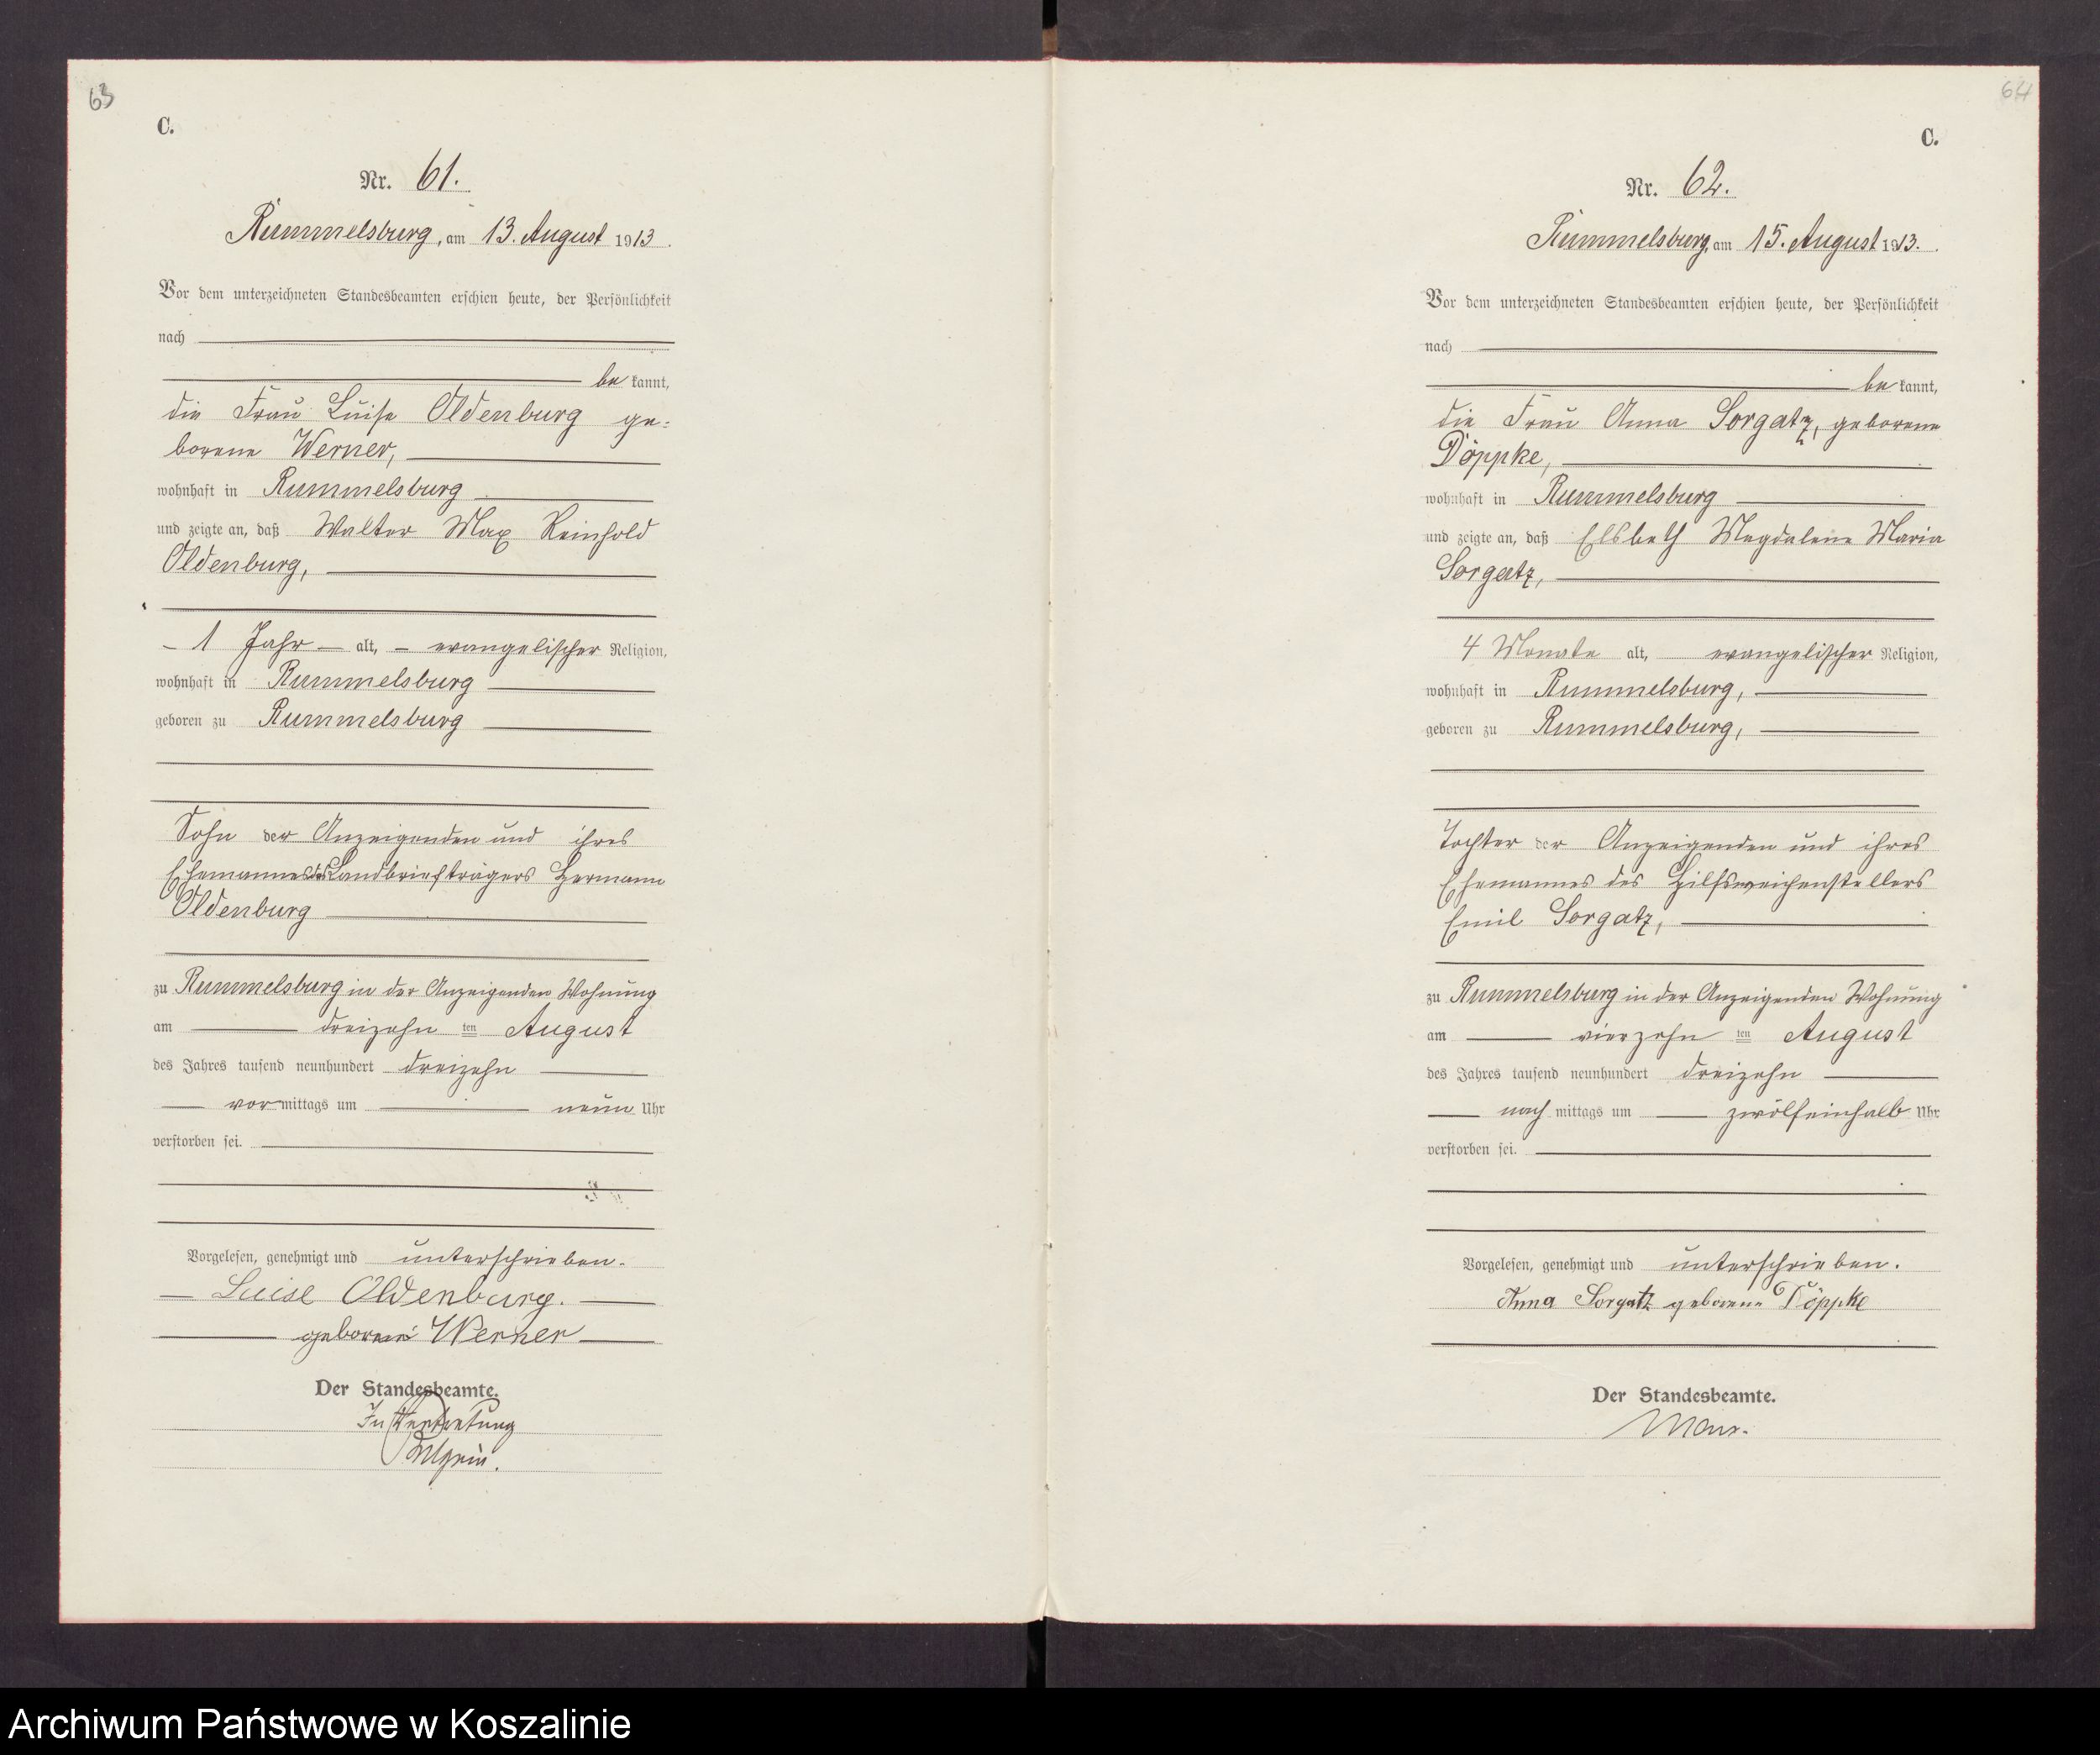 63
C.
Nr. 61.
Rummelsburg, am 13. August 1913.
Vor dem unterzeichneten Standesbeamten erschien heute, der Persönlichkeit
nach
be kannt,
die Frau Luise Oldenburg ge-
borene Werner,
wohnhaft in Rummelsburg
und zeigte an, daß Walter Max Reinhold
Oldenburg,
1 Jahr alt, evangelischer Religion,
wohnhaft in Rummelsburg
geboren zu Rummelsburg
Sohn der Anzeigenden und ihres
Ehemannes des Landbriefträgers Hermann
Oldenburg
zu Rummelsburg in der Anzeigenden Wohnung
am dreizehn ten August
des Jahres tausend neunhundert dreizehn
vor mittags um neun Uhr
verstorben sei.
Vorgelesen, genehmigt und unterschrieben.
Luise Oldenburg.
geborene Werner
Der Standesbeamte.
In Vertretung
64
C.
Nr. 62.
Rummelsburg, am 15. August 1913.
Vor dem unterzeichneten Standesbeamten erschien heute, der Persönlichkeit
nach
be kannt,
die Frau Anna Sorgatz, geborene
Döppke,
wohnhaft in Rummelsburg
und zeigte an, daß Elsbeth Magdalene Maria
Sorgatz,
4 Monate alt, evangelischer Religion,
wohnhaft in Rummelsburg,
geboren zu Rummelsburg,
Tochter der Anzeigenden und ihres
Ehemannes des Hilfsweichenstellers
Emil Sorgatz,
zu Rummelsburg in der Anzeigenden Wohnung
am vierzehn ten August
des Jahres tausend neunhundert dreizehn
nach mittags um zwölfeinhalb Uhr
verstorben sei.
Vorgelesen, genehmigt und unterschrieben.
Anna Sorgatz geborene Döppke
Der Standesbeamte.
Archiwum Państwowe w Koszalinie